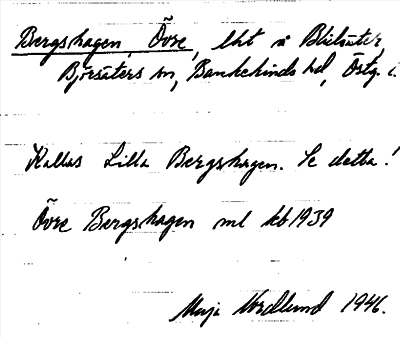 Bergshagen, Övre, lht u Blisäter,
Björsäters sn, Bankekinds hd, Östg. l.
Kallas Lilla Bergshagen. Se detta!
Övre Bergshagen ml kb 1939
Maja Nordlund 1946.